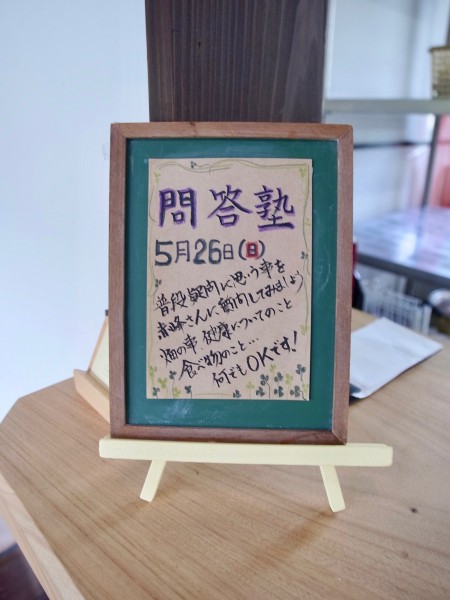 問答塾
5月26日(日)
普段疑問に思う事を
赤峰さんに質問してみましょう
畑の事、健康についてのこと
食べ物のこと…
何でもOKです!